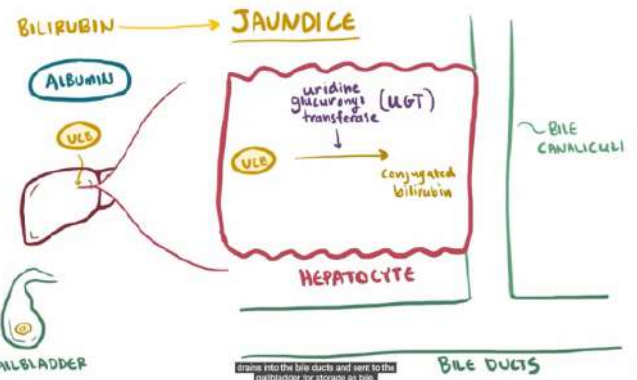 BILIRUBIN
JAUNDICE
ALBUMIN
uridine
glucuronyl
transferase
(UGT)
UCB
UCB
conjugated
bilirubin
BILE
CANALICULI
HEPATOCYTE
drains into the bile ducts and sent to the
gallbladder for storage as bile.
BILE DUCTS